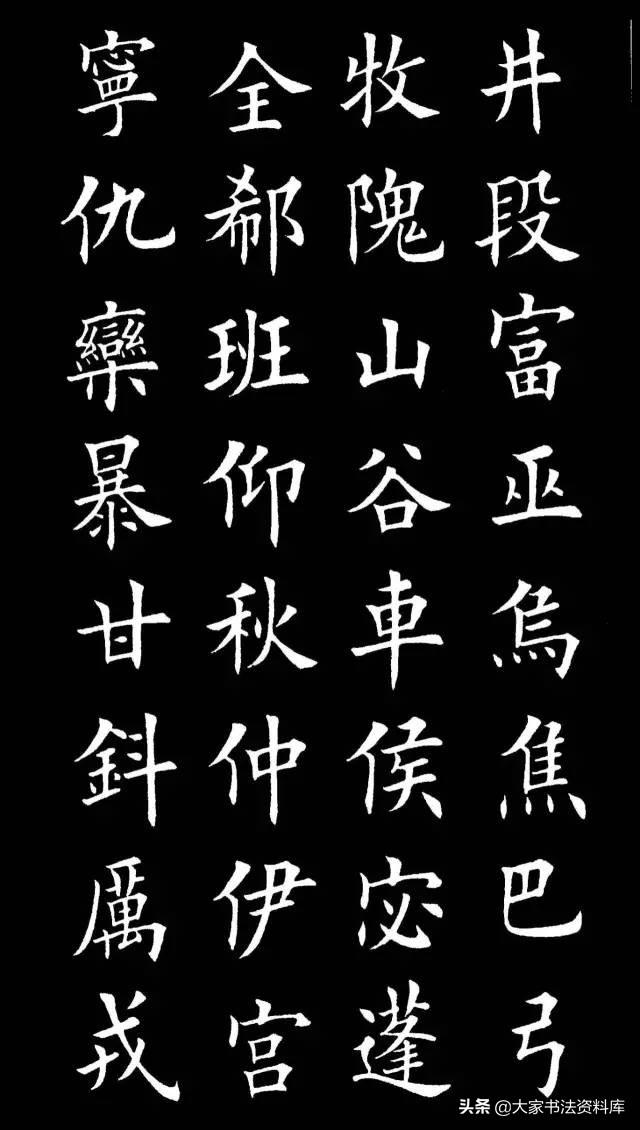 井段富巫烏焦巴弓
牧隗山谷車侯宓蓬
全郗班仰秋仲伊宫
寧仇欒暴甘鈄厲戎
头条 @大家书法资料库